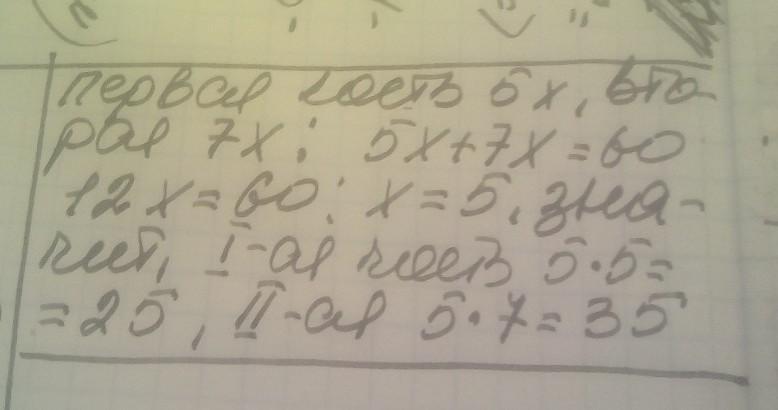 первая часть 5x, вто-
рая 7x; 5x+7x=60
12x=60; x=5, зна-
чит, I-ая часть 5·5=
=25, II-ая 5·7=35